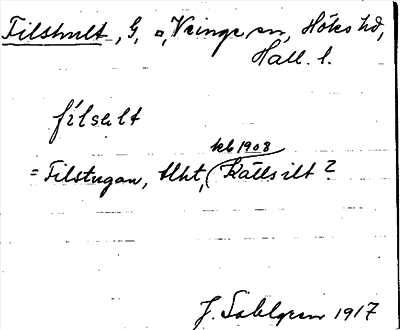 Filshult, G, Veinge sn, Höks hd,
Hall. l.
filselt
kb 1908
= Filstugan, tlht, Källsilt?
J. Sahlgren 1917